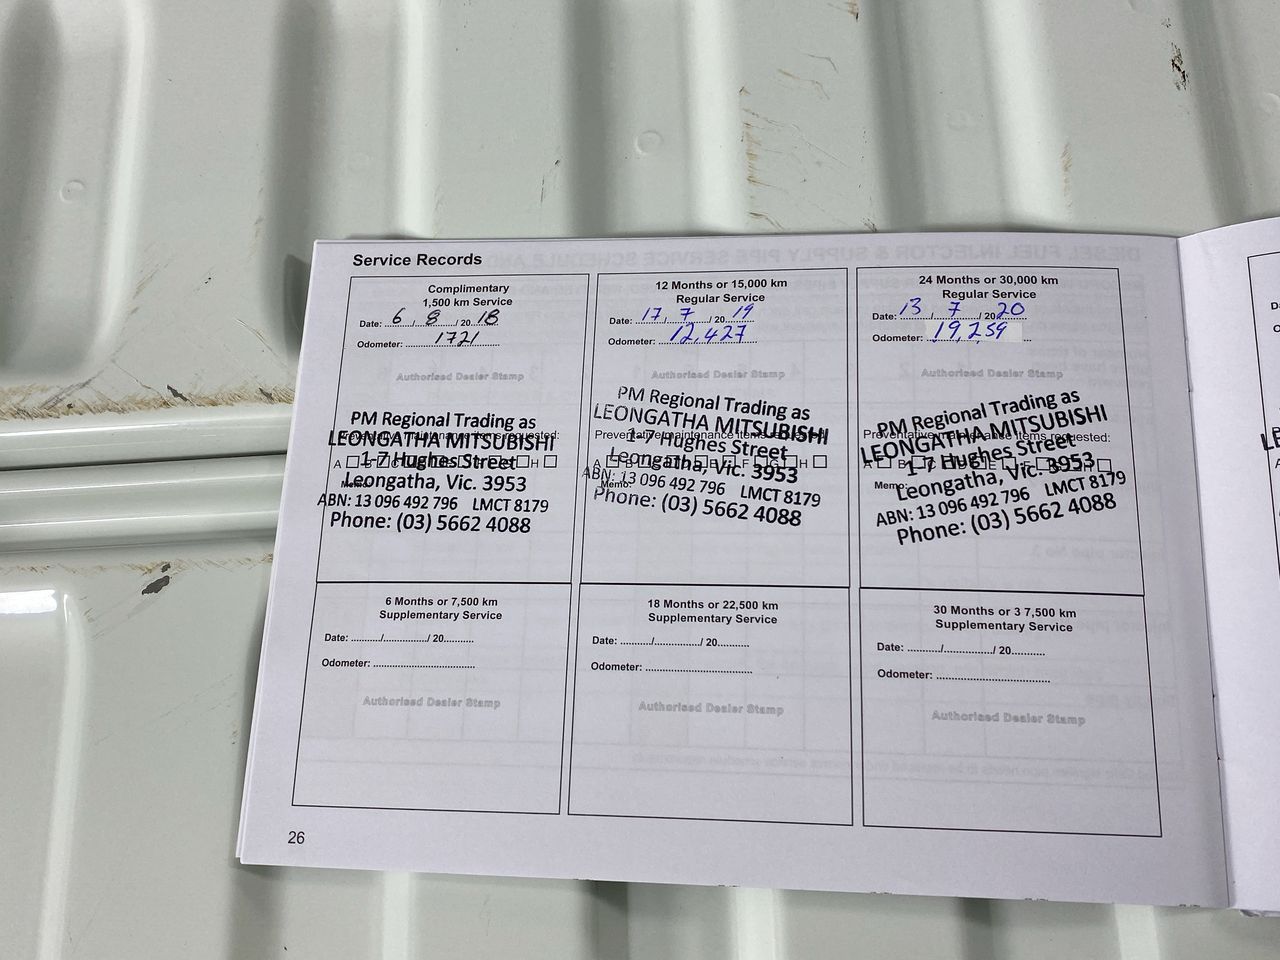 Service Records
Complimentary
1,500 km Service
Date: 6 / 8 / 2018
Odometer: 1721
Authorised Dealer Stamp
PM Regional Trading as
LEONGATHA MITSUBISHI
1-7 Hughes Street
Leongatha, Vic. 3953
ABN: 13 096 492 796 LMCT 8179
Phone: (03) 5662 4088
Preventative maintenance items requested:
Memo:
12 Months or 15,000 km
Regular Service
Date: 17 / 7 / 2019
Odometer: 12,427
Authorised Dealer Stamp
PM Regional Trading as
LEONGATHA MITSUBISHI
1-7 Hughes Street
Leongatha, Vic. 3953
ABN: 13 096 492 796 LMCT 8179
Phone: (03) 5662 4088
Preventative maintenance items requested
Memo:
24 Months or 30,000 km
Regular Service
Date: 13 / 7 / 2020
Odometer: 19,259
Authorised Dealer Stamp
PM Regional Trading as
LEONGATHA MITSUBISHI
1-7 Hughes Street
Leongatha, Vic. 3953
ABN: 13 096 492 796 LMCT 8179
Phone: (03) 5662 4088
Preventative maintenance items requested:
Memo:
6 Months or 7,500 km
Supplementary Service
Date: ........../................/ 20..........
Odometer: ...................................
Authorised Dealer Stamp
18 Months or 22,500 km
Supplementary Service
Date: ........../................/ 20..........
Odometer: ...................................
Authorised Dealer Stamp
30 Months or 3 7,500 km
Supplementary Service
Date: ........../................/ 20..........
Odometer: ...................................
Authorised Dealer Stamp
26